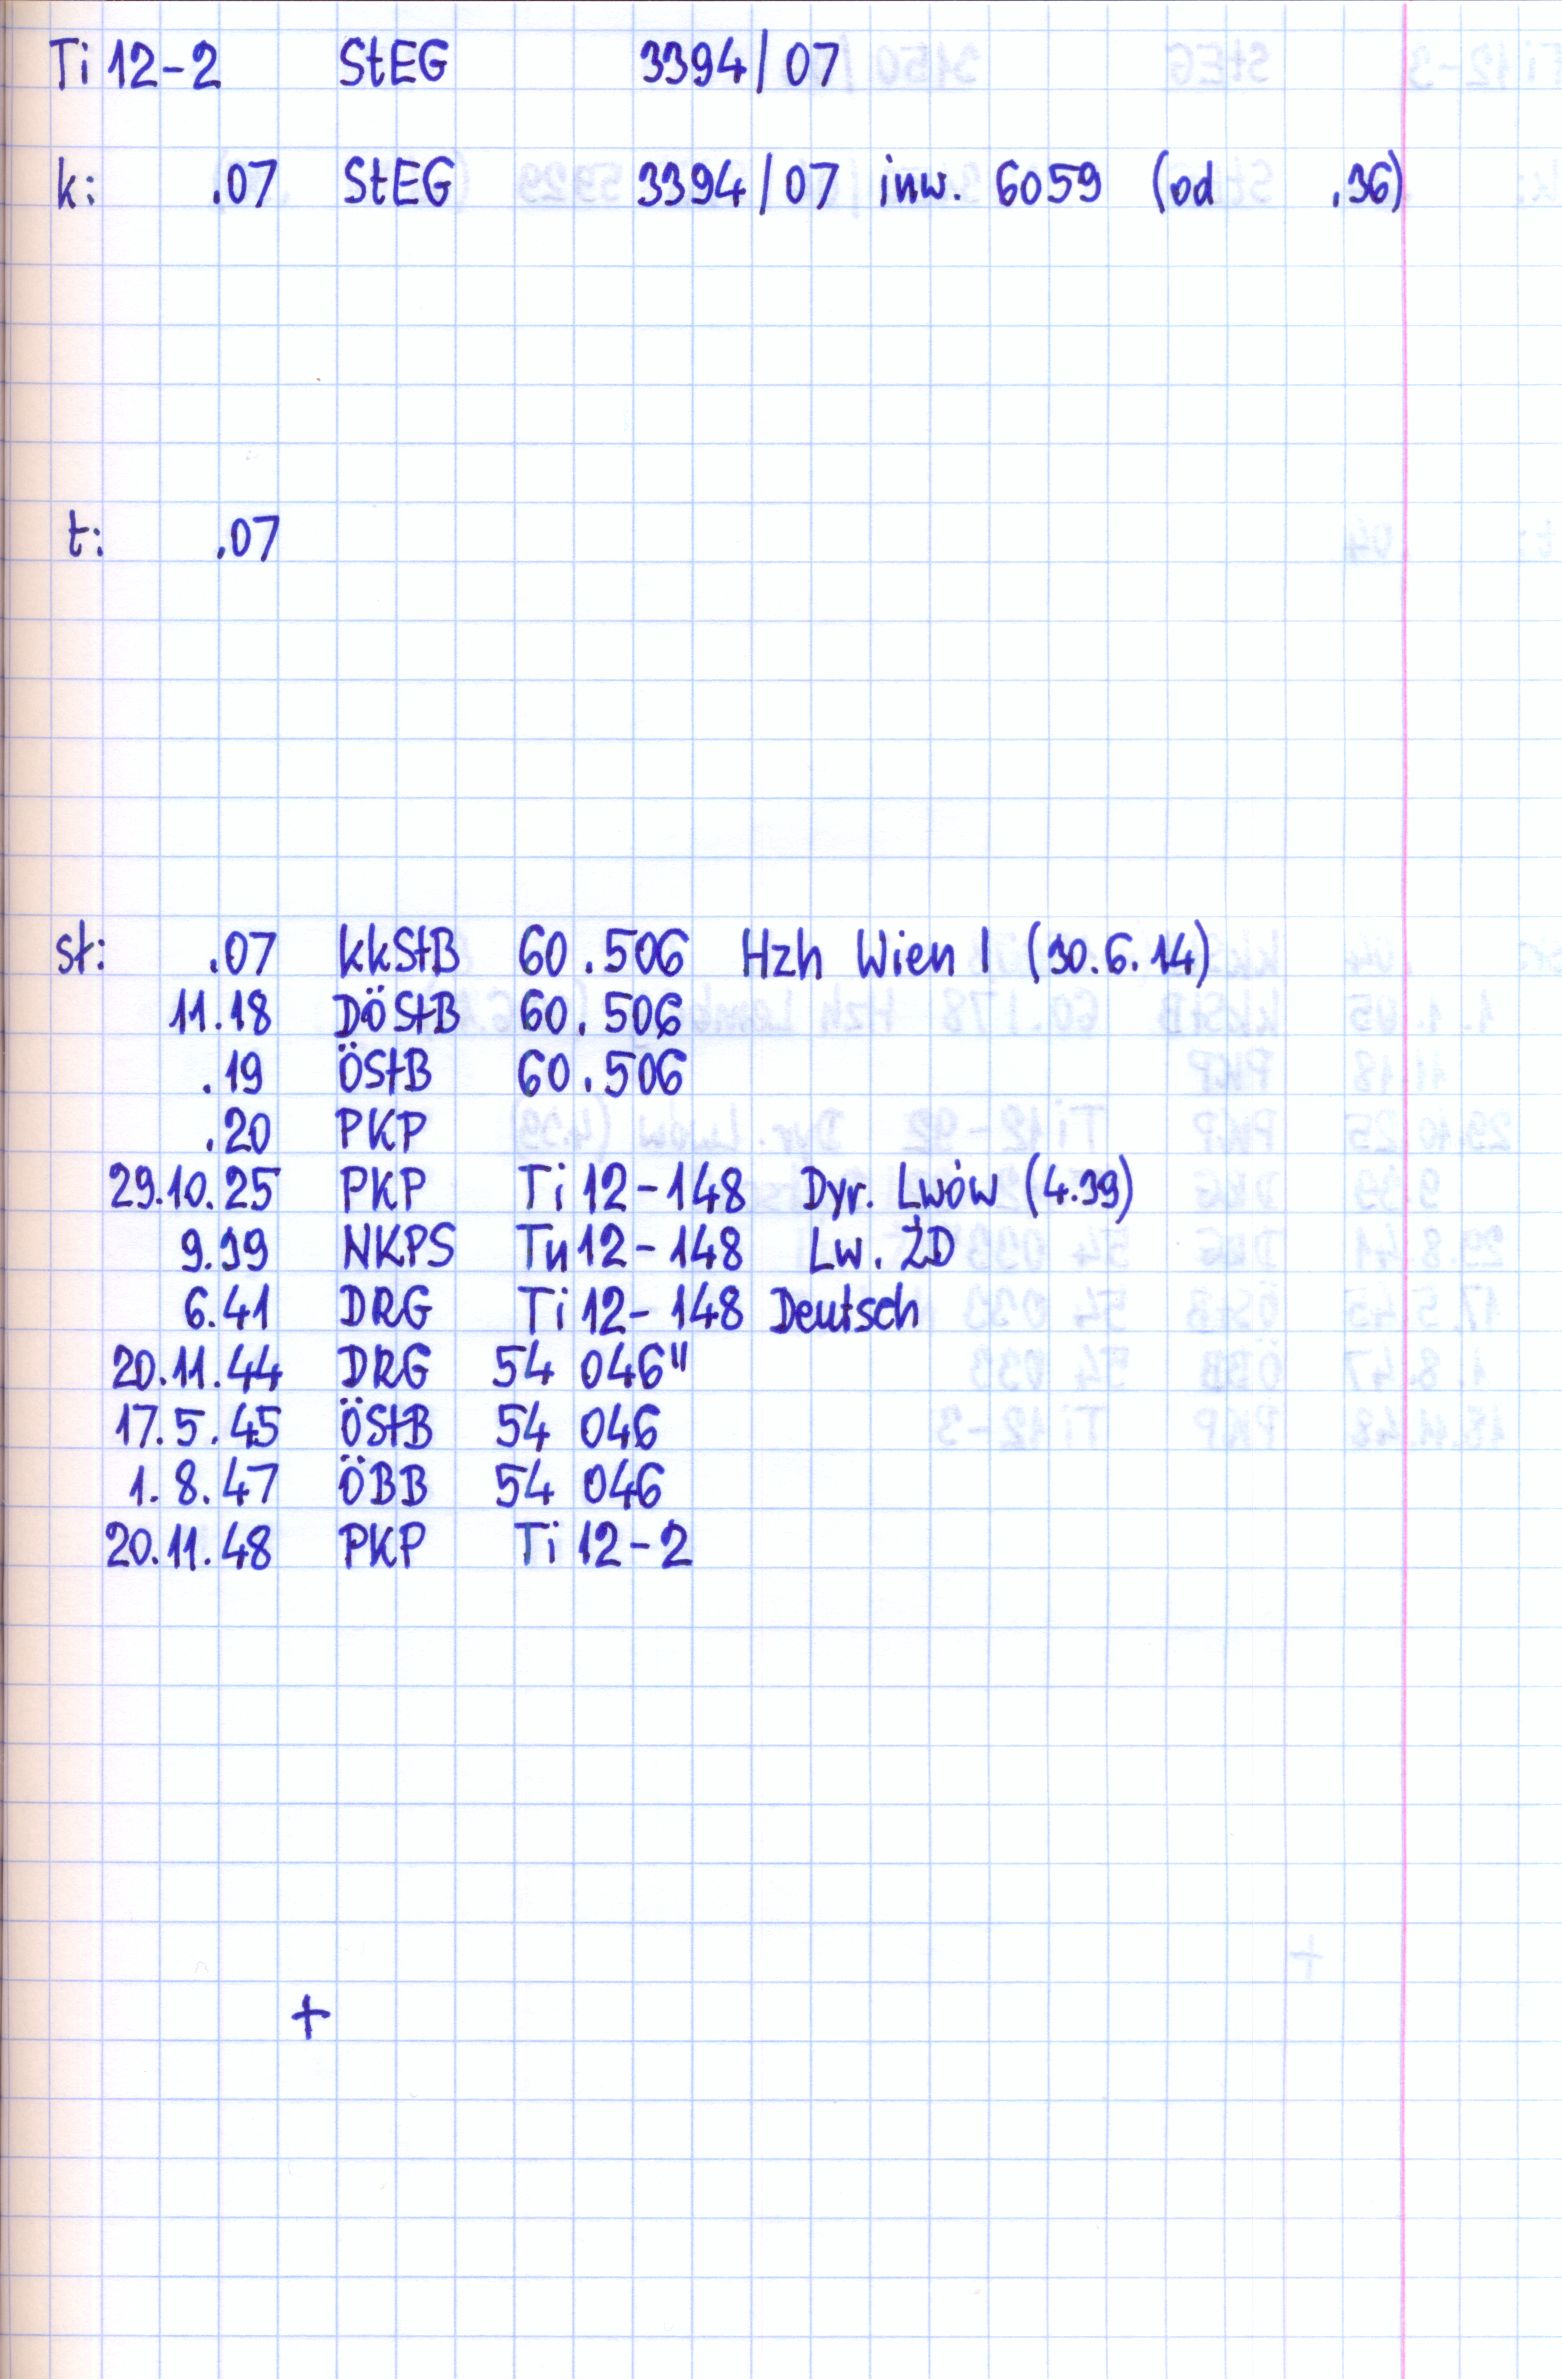 Ti 12-2 StEG 3394/07
k: .07 StEG 3394/07 inw. 6059 (od .36)
t: .07
st: .07 kkStB 60.506 Hzh Wien I (30.6.14)
11.18 DÖStB 60.506
.19 ÖStB 60.506
.20 PKP
29.10.25 PKP Ti 12-148 Dyr. Lwów (4.39)
9.39 NKPS Tu 12-148 Lw. ŻD
6.41 DRG Ti 12-148 Deutsch
20.11.44 DRG 54 046"
17.5.45 ÖStB 54 046
1.8.47 ÖBB 54 046
20.11.48 PKP Ti 12-2
+